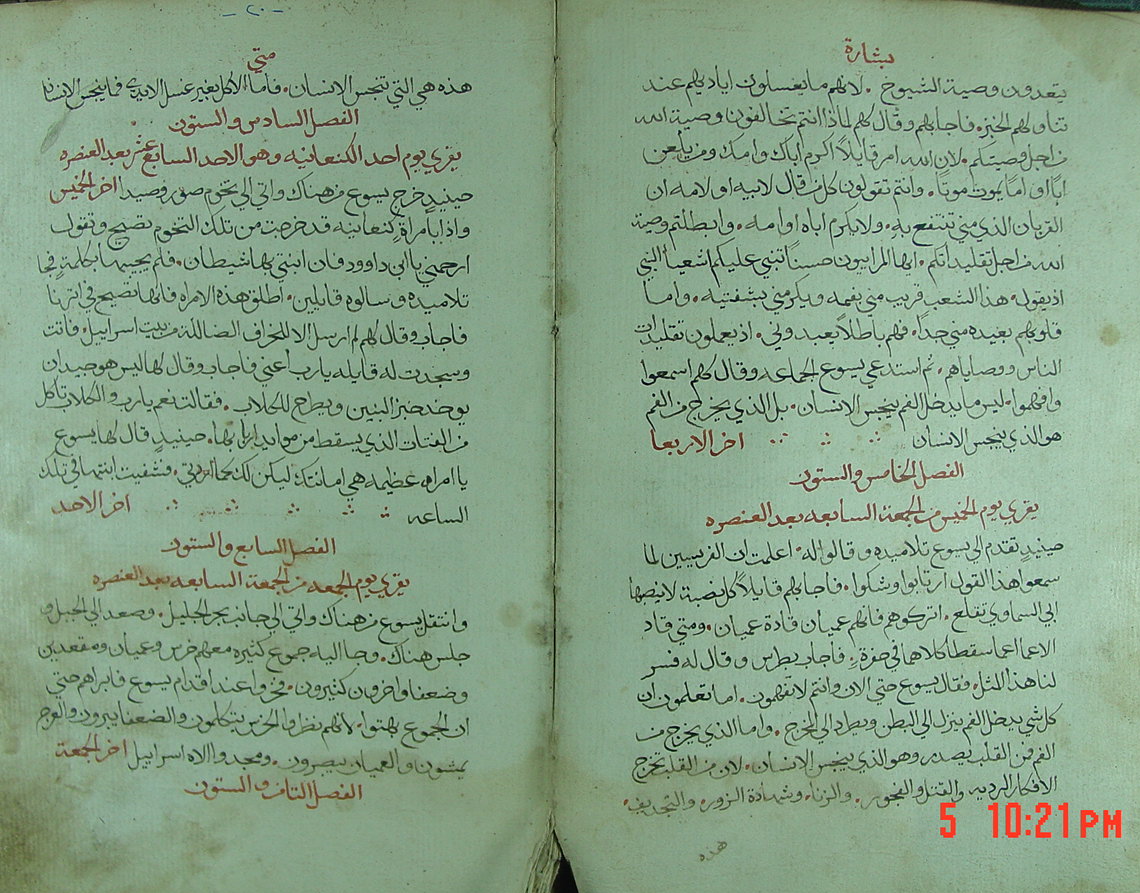 بشارة
يتعدون وصية الشيوخ . لانهم ما يغسلون اياديهم عند
تناولهم الخبز . فاجابهم وقال لهم لماذا انتم تخالفون وصية الله
من اجل وصيتكم . لان الله امر قايلاً اكرم اباك وامك ومن يلعن
اباً او اماً يموت موتاً . وانتم تقولون كل من قال لابيه او لامه ان
القربان الذي مني تنتفع به . ولا يكرم اباه او امه . وابطلتم وصية
الله من اجل تقليداتكم . ايها المرايين حسناً تنبي عليكم اشعيا النبي
اذ يقول . هذا الشعب قريب مني بفمه ويكرمني بشفتيه . واما
قلوبهم بعيده مني جداً . فهم باطلاً يعبدوني . اذ يعلمون تقليدات
الناس ووصاياهم . ثم استدعي يسوع الجماعه وقال لهم اسمعوا
وافهموا . ليس ما يدخل الفم ينجس الانسان . بل الذي يخرج من الفم
هو الذي ينجس الانسان اخر الاربعا
الفصل الخامس والستون
يقري يوم الخميس من الجمعة السابعه بعد العنصره
حينيدٍ تقدم الي يسوع تلاميذه وقالوا له . اعلمت ان الفريسيين لما
سمعوا هذا القول ارتابوا وشكوا . فاجابهم قايلاً كل نصبة لا ينصبها
ابي السماوي تقلع . اتركوهم فانهم عميان قادة عميان . ومتي قاد
الاعما اعما سقطا كلاهما في حفرة . فاجاب بطرس وقال له فسر
لنا هذا المثل . فقال يسوع حتي الان وانتم لا تفهمون . اما تعلمون ان
كل شي يدخل الفم ينزل الي البطن ويطرد الي المخرج . واما الذي يخرج من
الفم فمن القلب يصدر وهو الذي ينجس الانسان . لان من القلب تخرج
الافكار الرديه والقتل والفجور . والزنا . وشهادة الزور . والتجديف .
هذه
5 10:21 PM
-٢٠-
متي
هذه هي التي تنجس الانسان . فاما الاكل بغير غسل الايدي فما ينجس الانسان
الفصل السادس والستون
يقري يوم احد الكنعانيه وهو الاحد السابع عشر بعد العنصره
حينيدٍ خرج يسوع من هناك واتي الي تخوم صور وصيدا اخر الخميس
واذا بامراة كنعانيه قد خرجت من تلك التخوم تصيح وتقول
ارحمني يا ابن داوود فان ابنتي بها شيطان . فلم يجيبها بكلمة فجا
تلاميذه وسالوه قايلين . اطلق هذه الامراه فانها تصيح في اثرنا
فاجاب وقال لهم لم ارسل الا للخراف الضالة من بيت اسراييل . فاتت
وسجدت له قايله يا رب اعني فاجاب وقال لها ليس هو جيد ان
يوخذ خبز البنين ويطرح للكلاب . فقالت نعم يا رب والكلاب تاكل
من الفتات الذي يسقط من موايد اربابها . حينيدٍ قال لها يسوع
يا امراه عظيمه هي امانتك ليكن لك كما اردتي . فشفيت ابنتها في تلك
الساعه اخر الاحد
الفصل السابع والستون
يقري يوم الجمعه من الجمعة السابعه بعد العنصره
وانتقل يسوع من هناك واتي الي جانب بحر الجليل . وصعد الي الجبل و
جلس هناك . وجا اليه جموع كثيره معهم خرس وعميان ومقعدين
وضعفا واخرون كثيرون . فخروا عند اقدام يسوع فابراهم حتي
ان الجموع بهتوا . لانهم نظروا الخرس يتكلمون والضعفا يبرون والعرج
يمشون والعميان يبصرون . ومجدوا الاه اسراييل اخر الجمعة
الفصل الثامن والستون